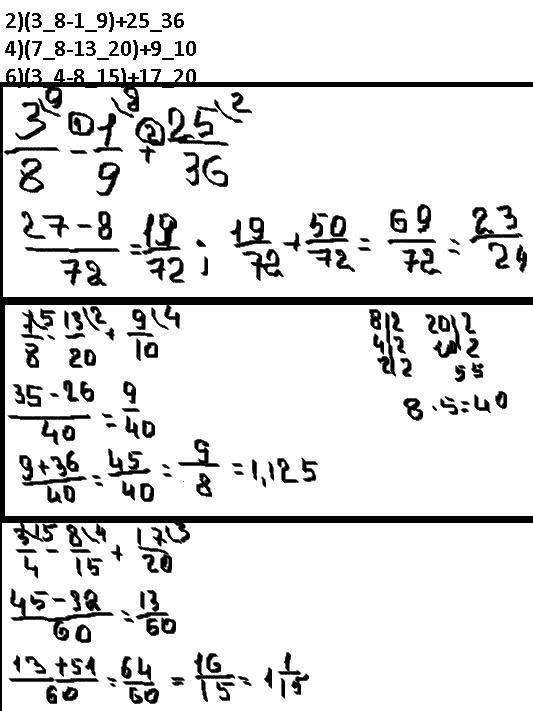 2)(3_8-1_9)+25_36
4)(7_8-13_20)+9_10
6)(3_4-8_15)+17_20
3\9/8 ① - 1\8/9 ② + 25\2/36
27-8/72 = 19/72 ; 19/72 + 50/72 = 69/72 = 23/24
7\5/8 - 13\2/20 + 9\4/10
8|2 20|2
4|2 10|2
2|2 5 5
35-26/40 = 9/40
8·5=40
9+36/40 = 45/40 = 9/8 = 1,125
3\15/4 - 8\4/15 + 17\3/20
45-32/60 = 13/60
13+51/60 = 64/60 = 16/15 = 1 1/15